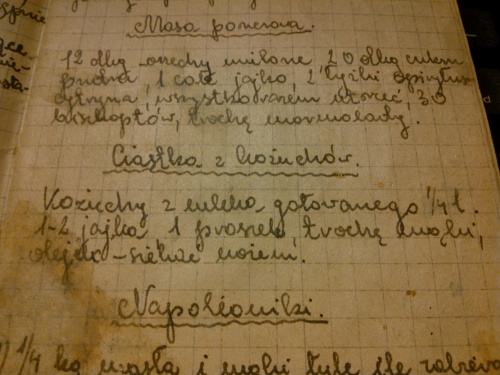 Masa ponczowa.
12 dkg orzechy mielone, 20 dkg cukru
pudru, 1 całe jajko, 2 łyżki spirytus
cytryna, wszystko razem utrzeć, 30
biszkoptów, trochę marmolady.
Ciastka z kożuchów.
Kożuchy z mleka gotowanego 1/4 l.
1-2 jajka, 1 proszek, trochę mąki,
olejek - siekać nożem.
Napoleonki.
1/4 kg masła i mąki tyle ile zabierze